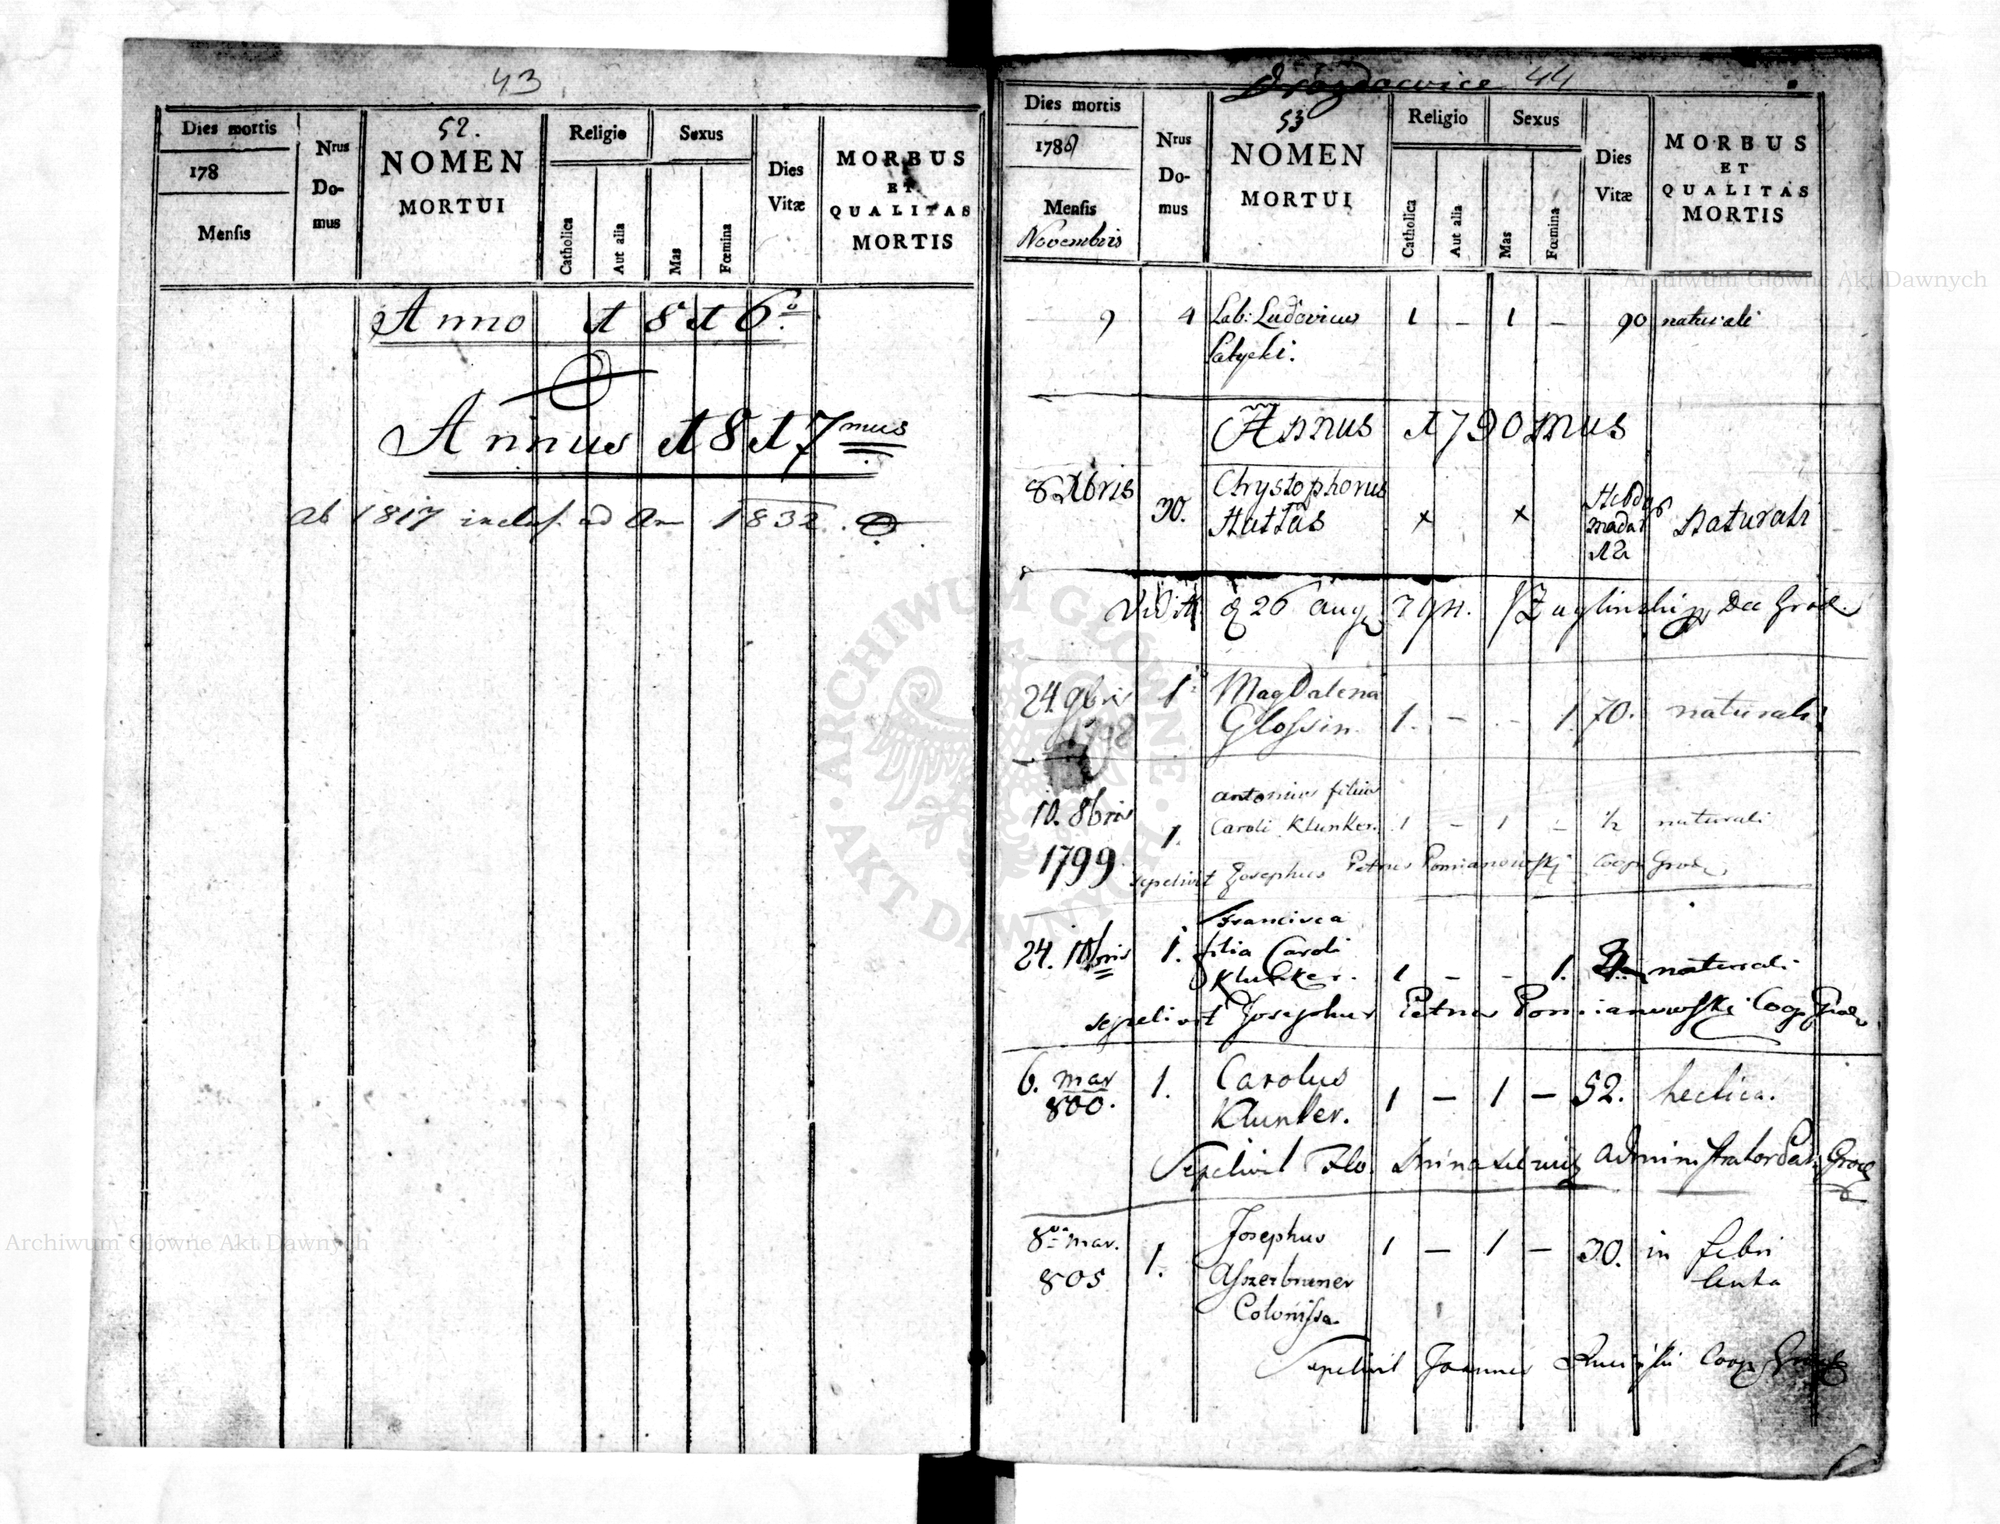 43
Dies mortis
178
Mensis
Nrus
Do-
mus
52.
NOMEN
MORTUI
Religio
Catholica
Aut alia
Sexus
Mas
Fœmina
Dies
Vitæ
MORBUS
ET
QUALITAS
MORTIS
Anno 1816o
Annus 1817mus
ab 1817 inclus. ad An 1832.
Drozdowice 44
Dies mortis
1789
Mensis
Novembris
Nrus
Do-
mus
53
NOMEN
MORTUI
Religio
Catholica
Aut alia
Sexus
Mas
Fœmina
Dies
Vitæ
MORBUS
ET
QUALITAS
MORTIS
9 4 Lab: Ludovicus 1 – 1 – 90 naturali
Annus 1790mus
8 Xbris 30. Chrystophorus
Huttas x x naturali
Vidit d 26 Aug
24. 9bris 1 Magdalena
1798 Glossin. 1. – – 1. 70. naturali
10. 8bris 1. Antonius filius
Caroli Klunker. 1 – 1 – ½ naturali
1799 sepelivit Josephus Petrus Pomianowski Coop Grod.
24. 10bris 1. Francisca
filia Caroli
Klunker. 1 – – 1. naturali
sepelivit Josephus Petrus Pomianowski Coop Grod.
6. mar 1. Carolus
800. Klunker. 1 – 1 – 52. hectica.
Sepelivit Administrator
8va mar. 1. Josephus 1 – 1 – 30. in febri
805 Aszerbruner lenta
Colonissa.
Sepelivit Joannes Coop
Archiwum Główne Akt Dawnych
Archiwum Główne Akt Dawnych
ARCHIWUM GŁÓWNE · AKT DAWNYCH ·